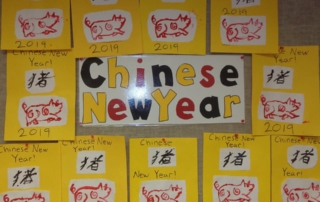 2019
2019
2019
2019
Chinese New
Year!
猪
2019
Chinese
New Year
Chinese New
Year!
猪
2019
Chinese New
Year!
猪
Chinese New
Year!
猪
Chinese
New Year!
猪
Chinese New
Year!
猪
Chinese New
Year!
猪